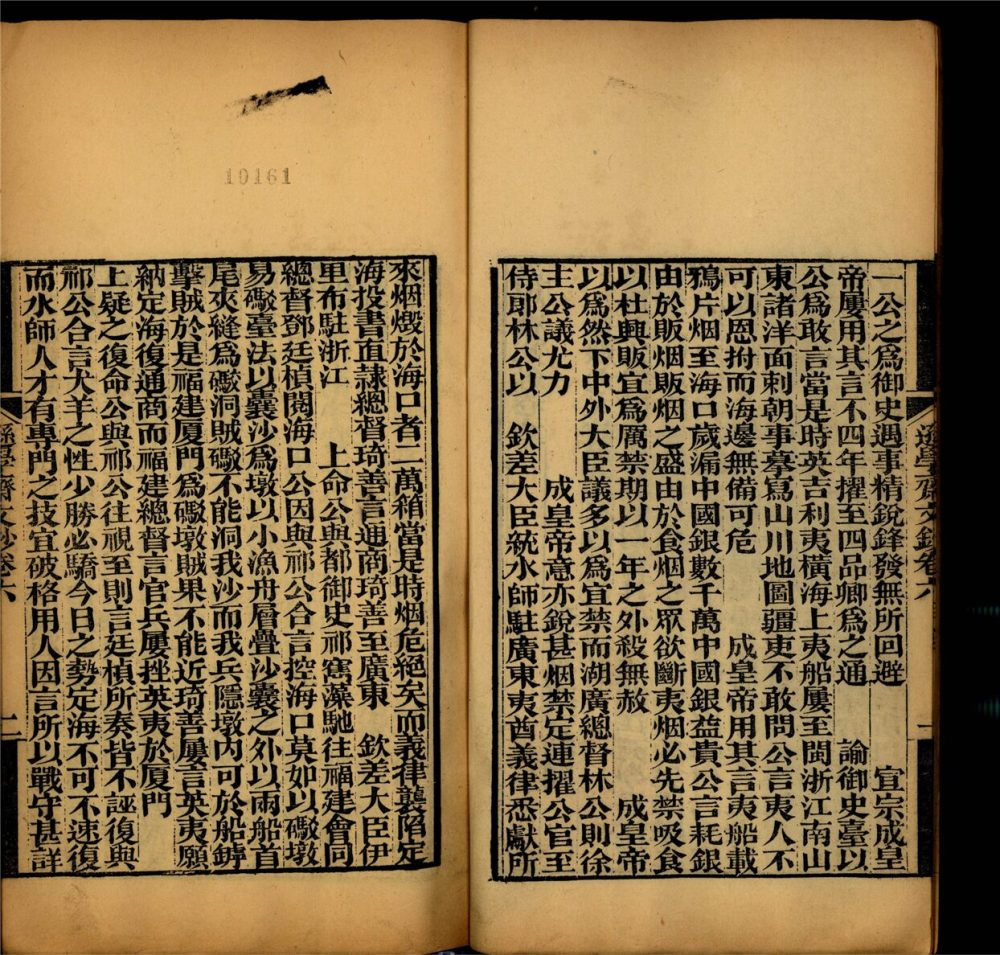 遜學齋文鈔卷六 一
一公之爲御史遇事精銳鋒發無所回避 宣宗成皇
帝屢用其言不四年擢至四品卿爲之通 諭御史臺以
公爲敢言當是時英吉利夷橫海上夷船屢至閩浙江南山
東諸洋面刺朝事摹寫山川地圖疆吏不敢問公言夷人不
可以恩拊而海邊無備可危 成皇帝用其言夷船載
鴉片烟至海口歲漏中國銀數千萬中國銀益貴公言耗銀
由於販烟販烟之盛由於食烟之眾欲斷夷烟必先禁吸食
以杜興販宜爲厲禁期以一年之外殺無赦 成皇帝
以爲然下中外大臣議多以爲宜禁而湖廣總督林公則徐
主公議尤力 成皇帝意亦銳甚烟禁定連擢公官至
侍郎林公以 欽差大臣統水師駐廣東夷酋義律悉獻所
10161
來烟燬於海口者二萬箱當是時烟危絕矣而義律襲陷定
海投書直隸總督琦善言通商琦善至廣東 欽差大臣伊
里布駐浙江 上命公與都御史祁寯藻馳往福建會同
總督鄧廷楨閱海口公因與祁公合言控海口莫如以礮墩
易礮臺法以囊沙爲墩以小漁舟層疊沙囊之外以兩船首
尾夾縫爲礮洞賊礮不能洞我沙而我兵隱墩內可於船罅
擊賊於是福建厦門爲礮墩賊果不能近琦善屢言英夷願
納定海復通商而福建總督言官兵屢挫英夷於厦門
上疑之復命公與祁公往視至則言廷楨所奏皆不誣復與
祁公合言犬羊之性少勝必驕今日之勢定海不可不速復
而水師人才有專門之技宜破格用人因言所以戰守甚詳
遜學齋文鈔卷六 一